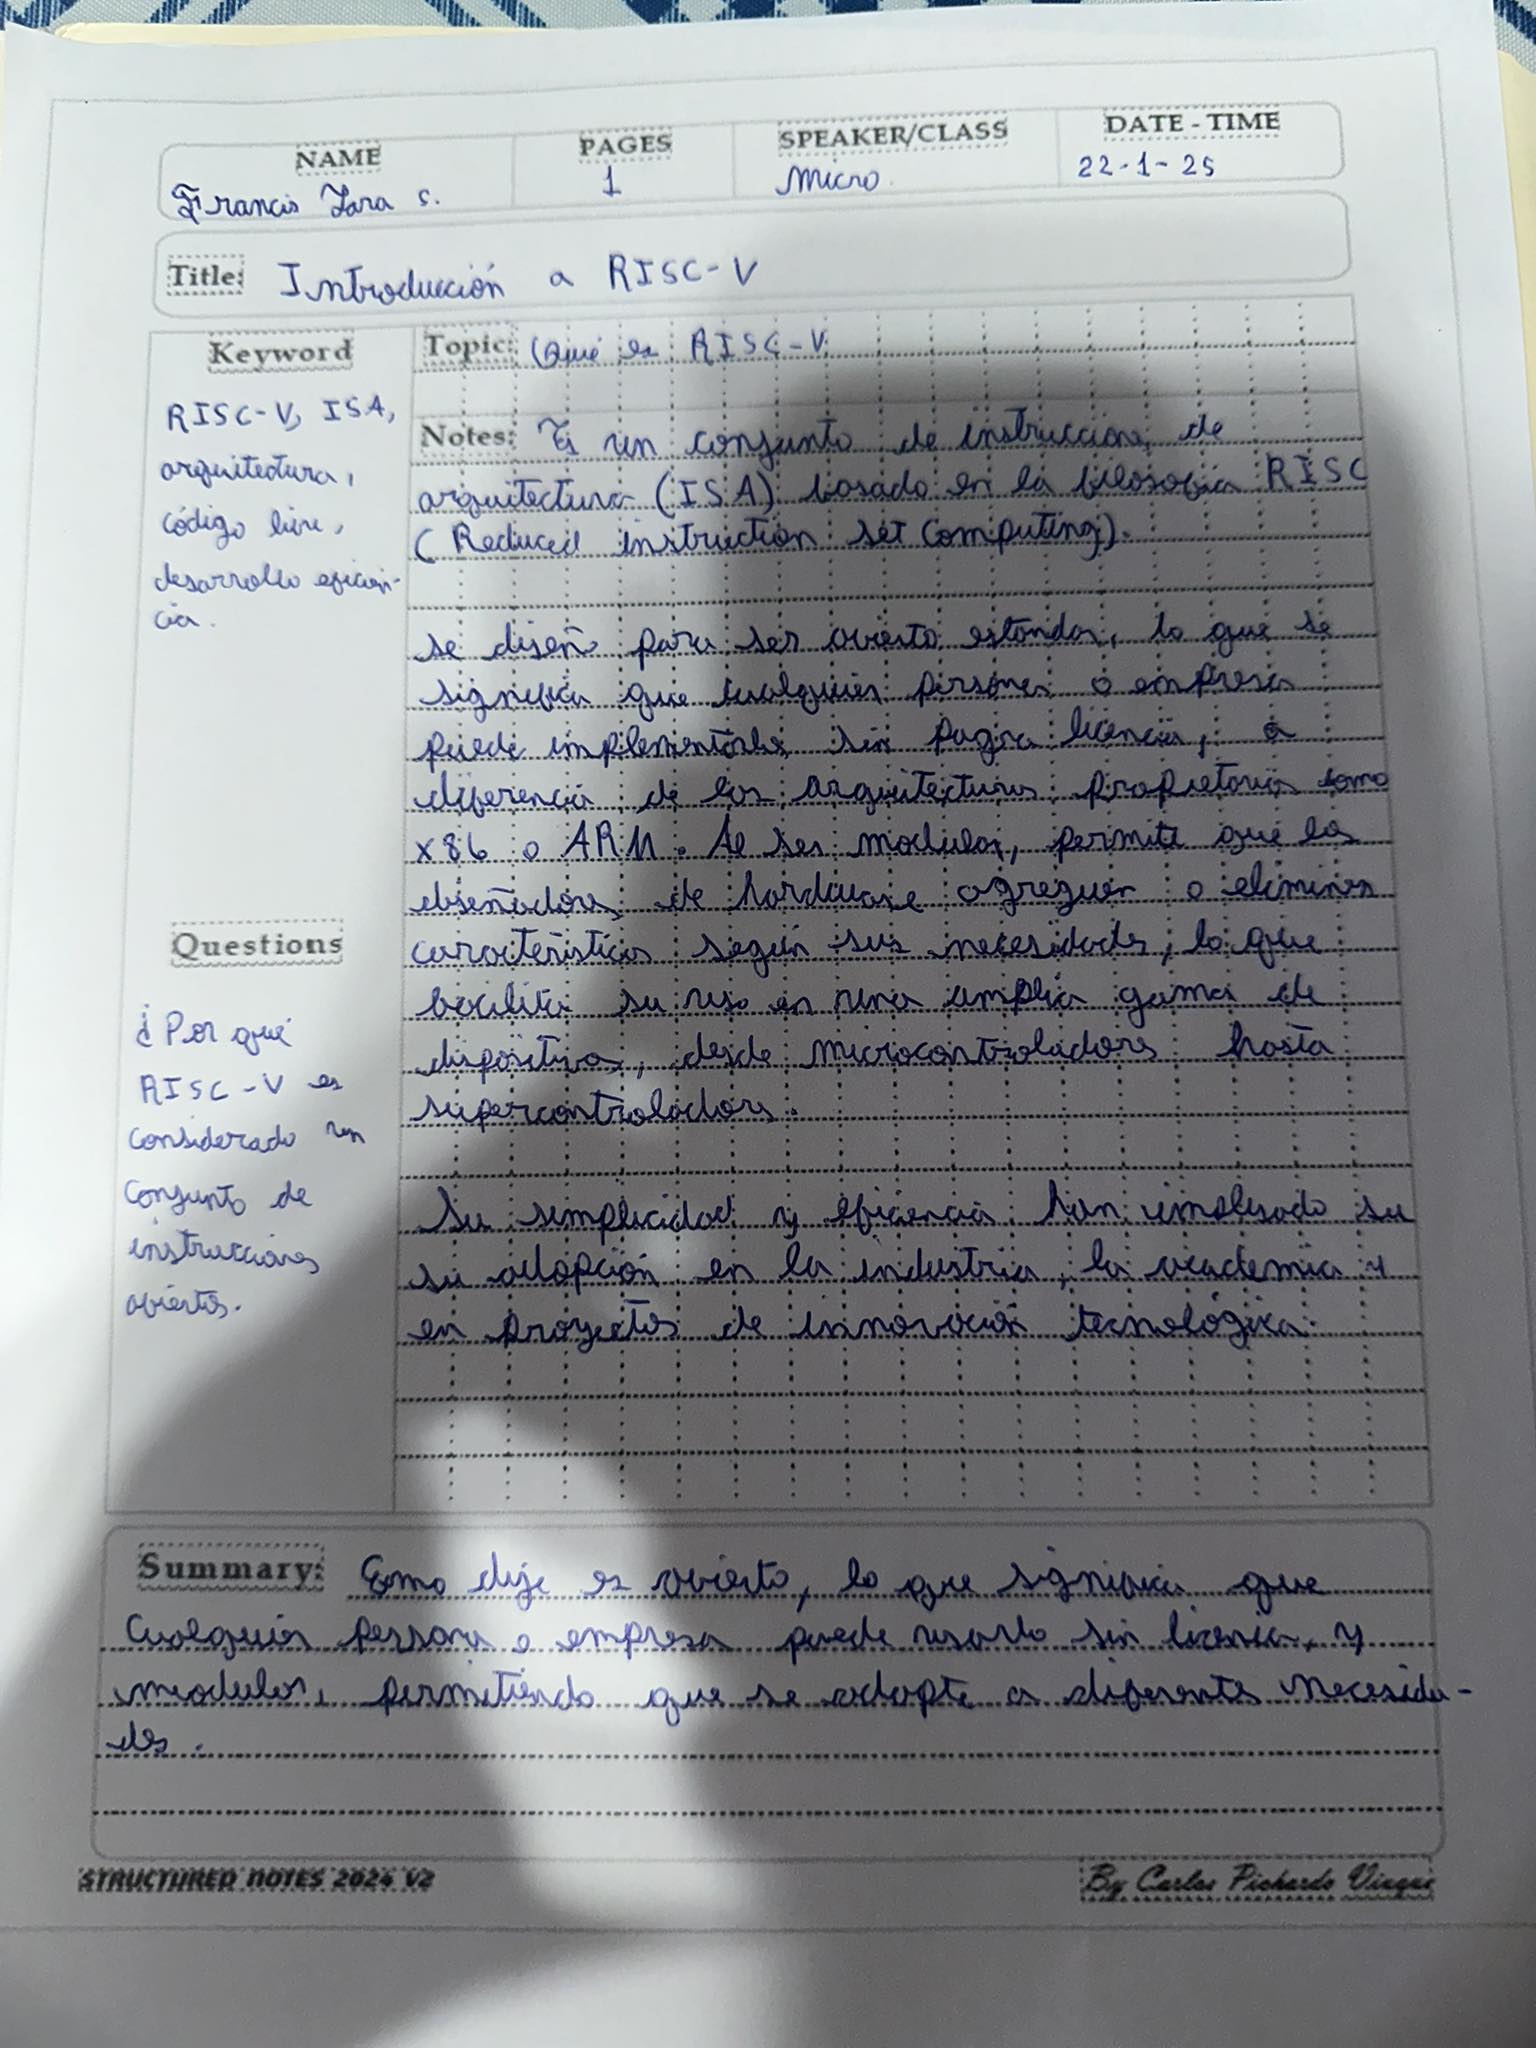 NAME PAGES SPEAKER/CLASS DATE - TIME
Francis Zara S. 1 Micro 22-1-25
Title: Introducción a RISC-V
Keyword
RISC-V, ISA,
arquitectura,
código libre,
desarrollo eficien-
cia.
Questions
¿Por qué
RISC-V es
considerado un
conjunto de
instrucciones
abiertos.
Topic: Qué es RISC-V
Notes: Es un conjunto de instrucciones de
arquitectura (ISA) basado en la filosofía RISC
(Reduced instruction set computing).
se diseño para ser abierto estandar, lo que se
significa que cualquier persona o empresa
puede implementarla sin pagra licencia, a
diferencia de las arquitecturas propietarias como
x86 o ARM. Al ser modular, permite que los
diseñadores de hardware agreguen o eliminen
características según sus necesidades, lo que
facilita su uso en una amplia gama de
dispositivos, desde microcontroladores hasta
supercontroladores.
Su simplicidad y eficiencia han impulsado su
su adopción en la industria, la academia y
en proyectos de innovación tecnológica.
Summary: Como dije es abierto, lo que significa que
cualquier persona o empresa puede usarlo sin licencia, y
modular, permitiendo que se adapte a diferentes necesida-
des.
STRUCTURED NOTES 2024 V2 By Carlos Pichardo Viuque